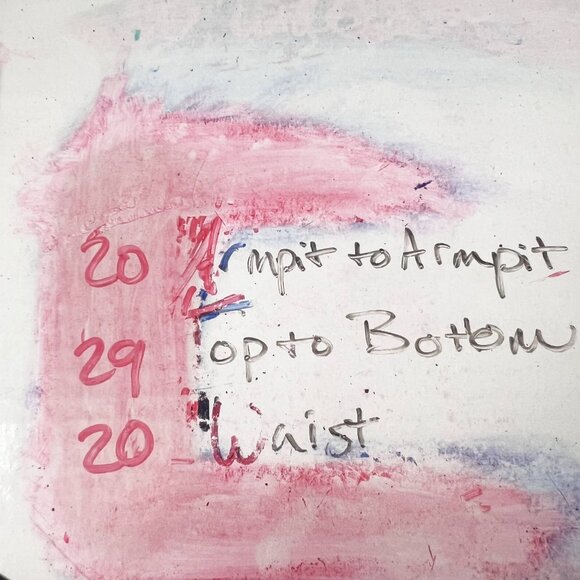 20 Armpit to Armpit
29 Top to Bottom
20 Waist